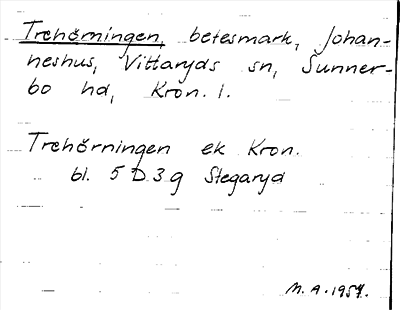 Trehörningen, betesmark, Johan-
neshus, Vittaryds sn, Sunner-
bo hd, Kron. l.
Trehörningen ek Kron.
bl. 5 D 3 g Stegaryd
M.A. 1957.